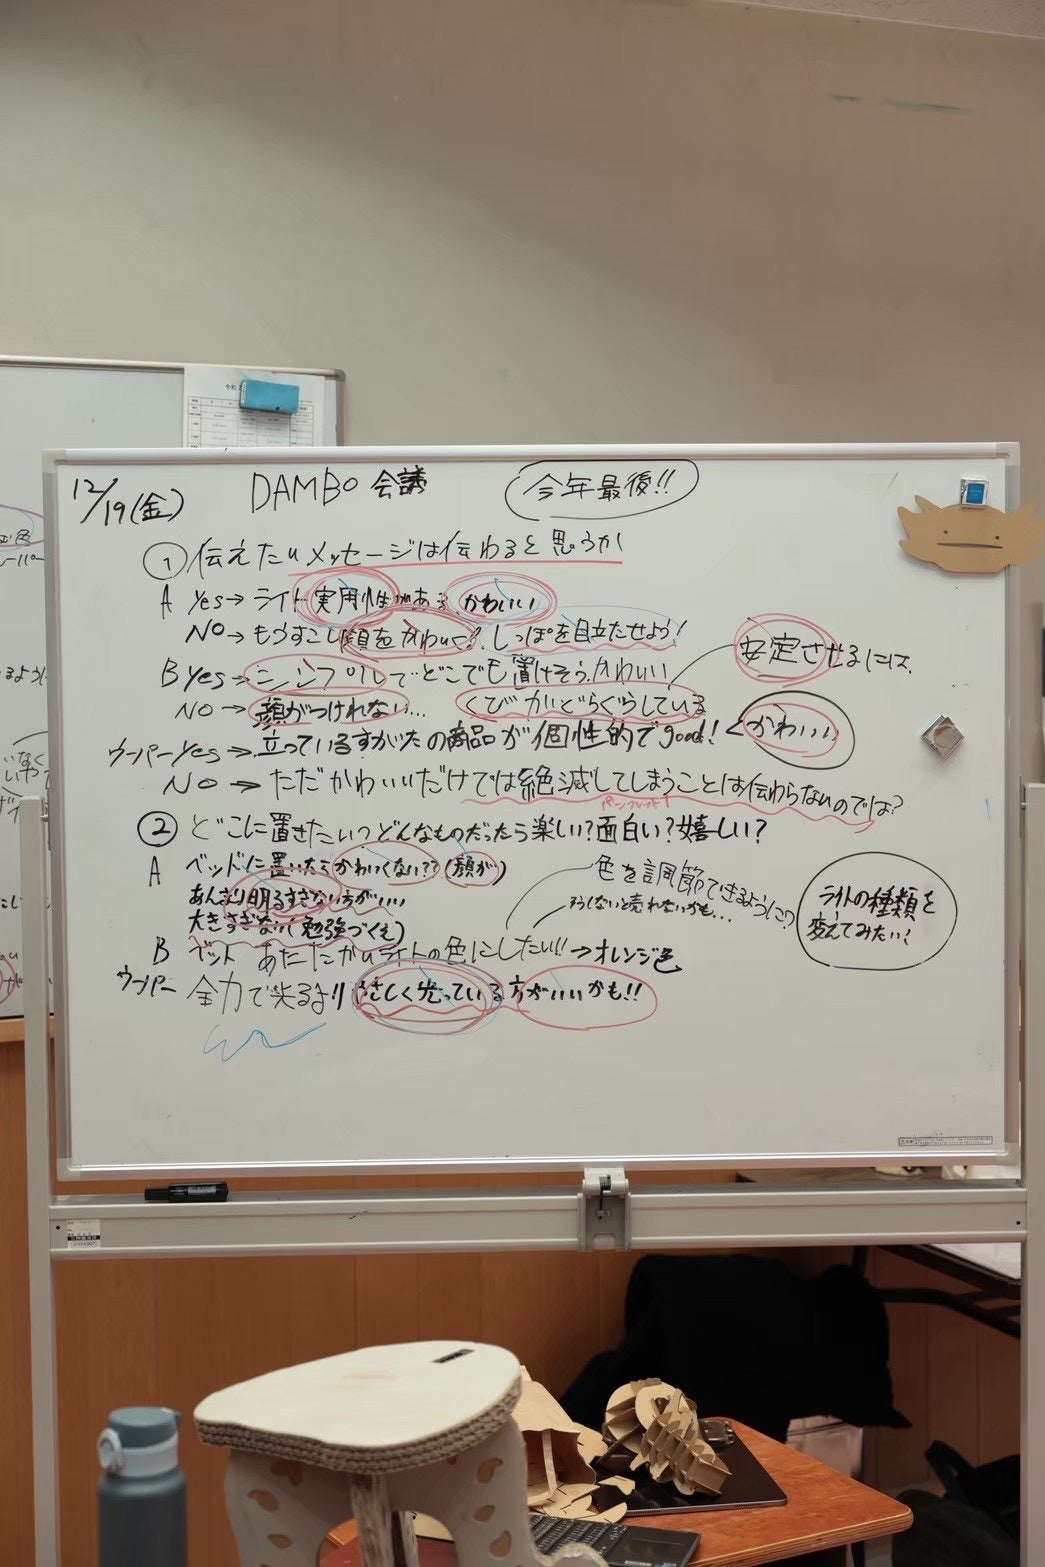 12/19(金) DAMBO 会議 今年最後!!
① 伝えたいメッセージは伝わると思うか
A Yes→ ライト 実用性がある かわいい
NO→ もうすこし顔をかわいく? しっぽを目立たせよう!
B Yes→ シンプルでどこでも置けそう、かわいい
安定させるには、
NO→ 顔がつけれない… くびがぐらぐらしている
ウーパー Yes→ 立っているすがたの商品が個性的でgood! < かわいい
NO → ただかわいいだけでは絶滅してしまうことは伝わらないのでは?
パンフレット!
② どこに置きたい?どんなものだったら楽しい?面白い?嬉しい?
A ベッドに置いたらかわいくない?? (顔が)
あんまり明るすぎない方がいい
大きすぎない(勉強づくえ)
色を調節できるように?
そうしないと売れないかも…
ライトの種類を
変えてみたい!
B ベット あたたかいライトの色にしたい!! →オレンジ色
ウーパー 全力で光るより やさしく光っている方がいいかも!!
令和